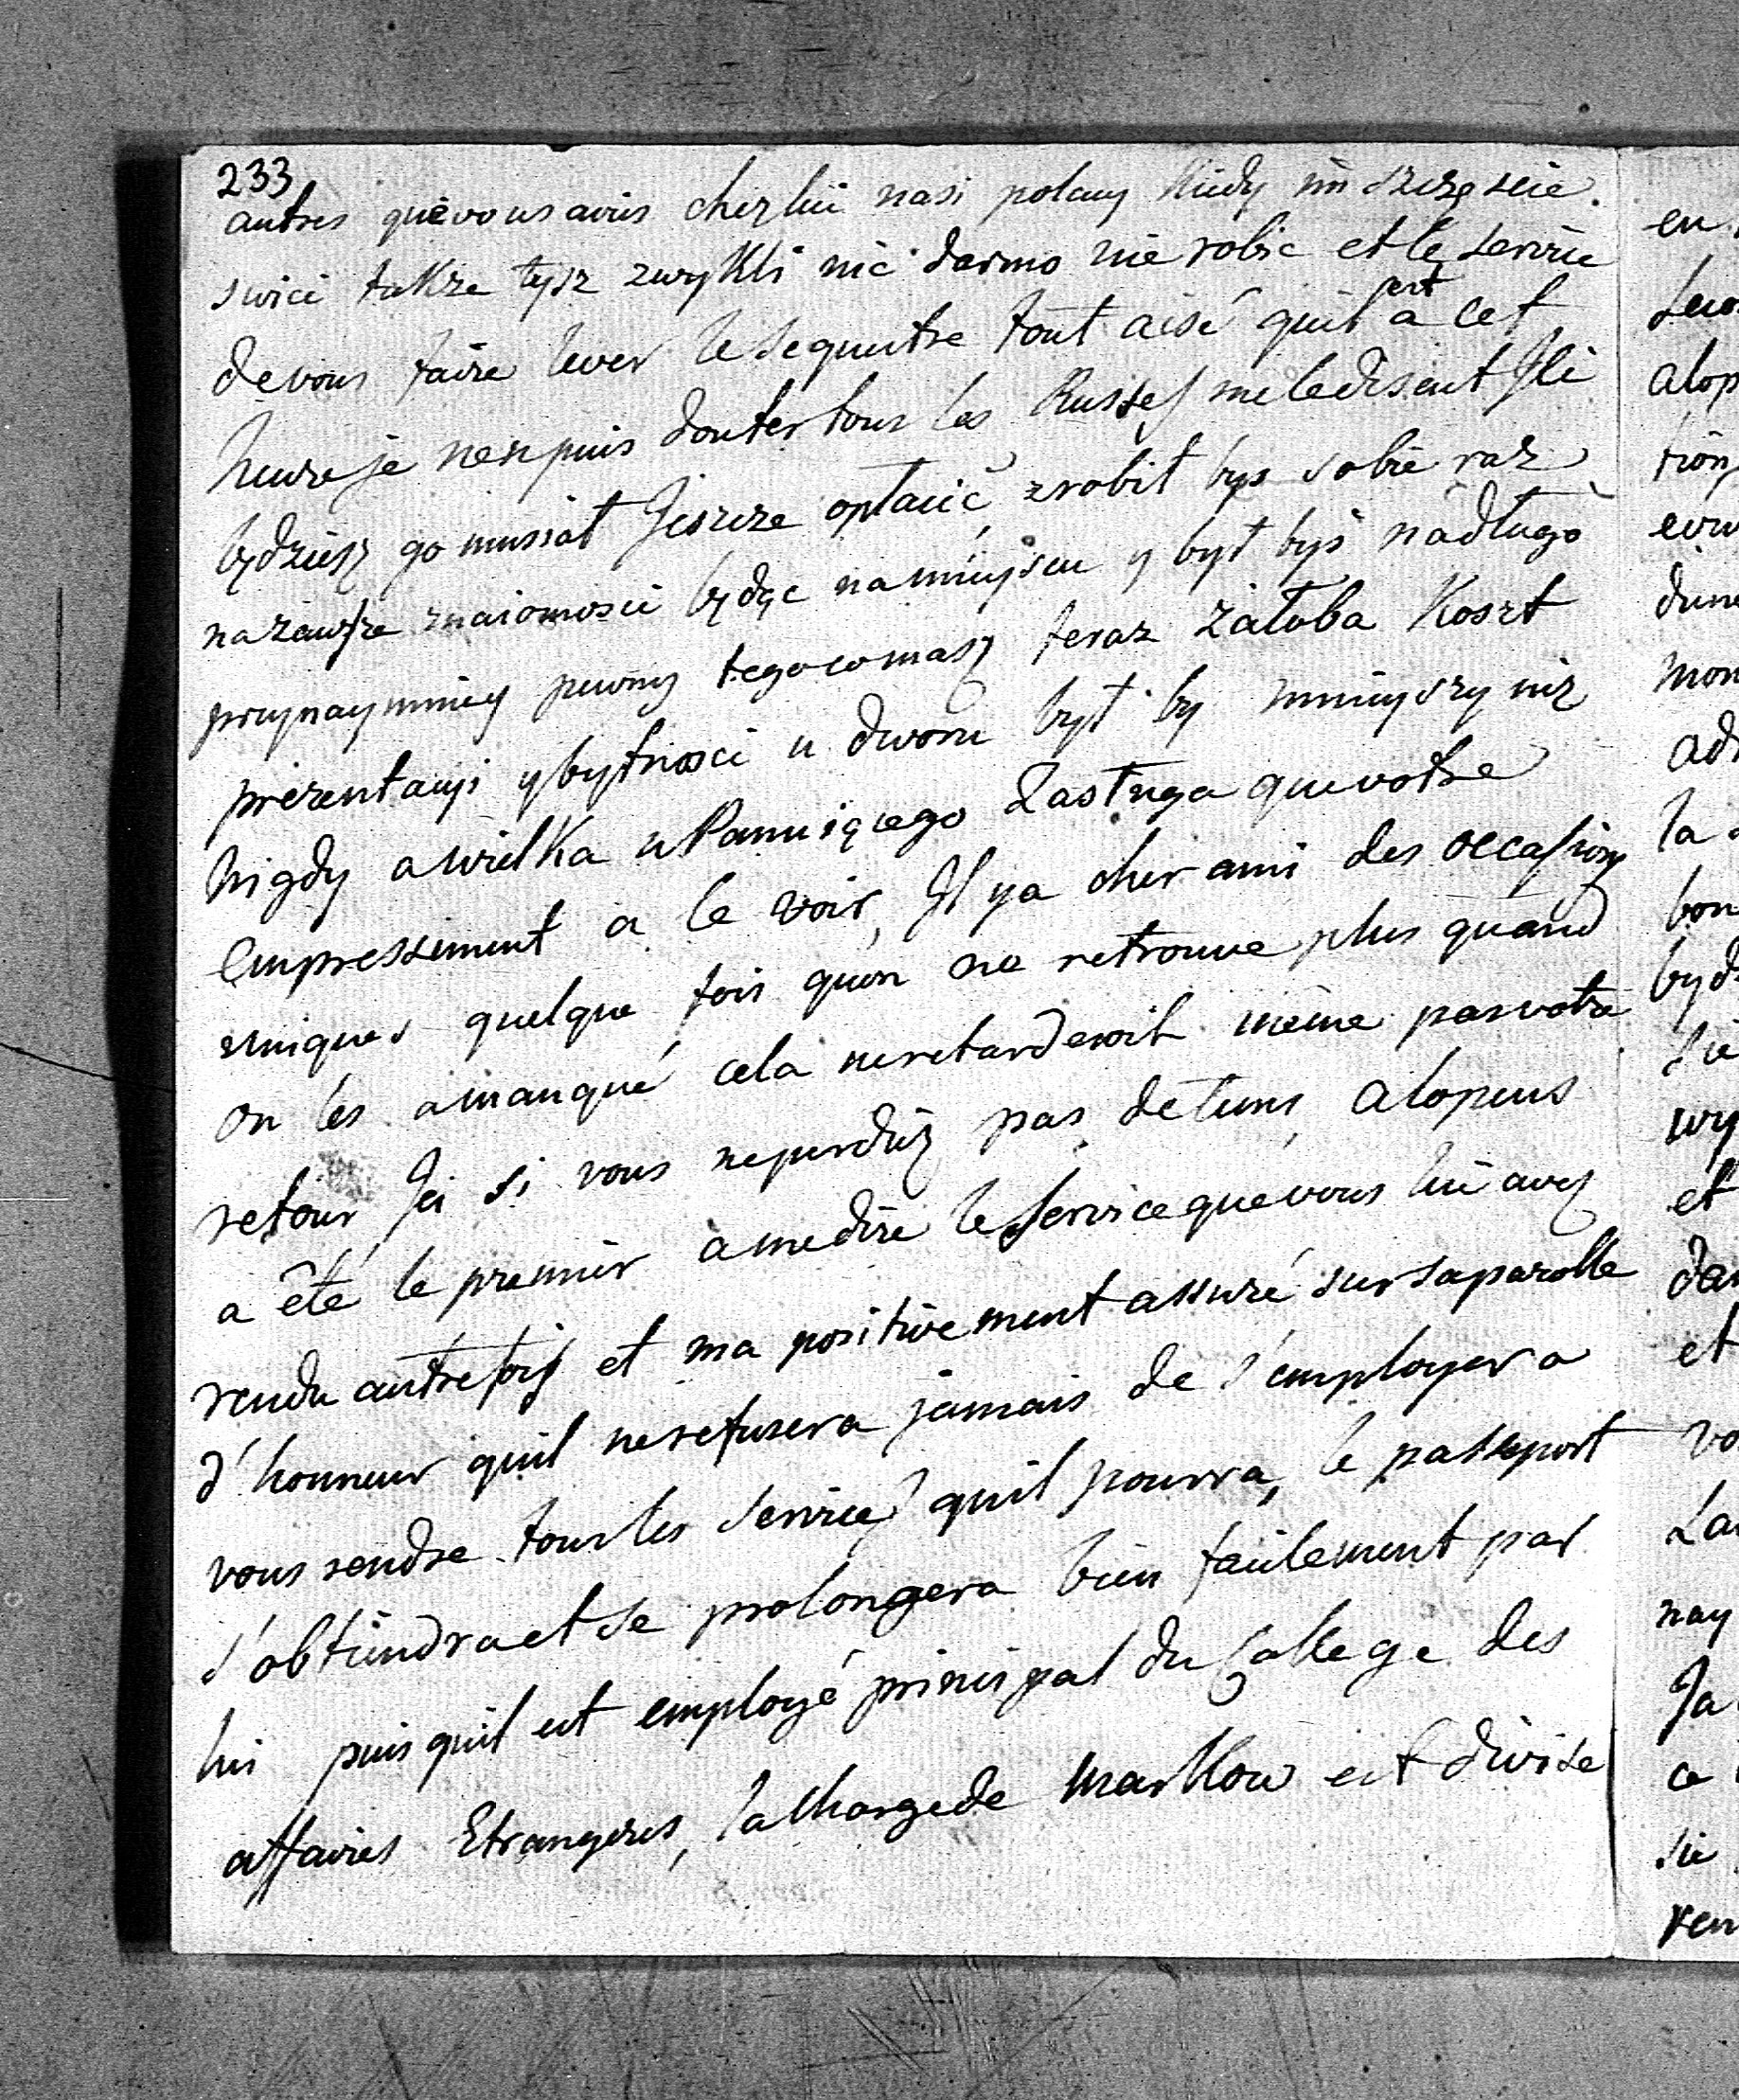 233
autres que vous aviés chez lui nasi polacy kiedy im szczęscie
swici takze tysz zwykli nic darmo nie robic et le service
de vous faire lever le sequestre tout aisé quil est a cet
heure je nen puis douter tous les Russes me le disent Jli
będziesz go musiał Jeszcze opłacić zrobił bys sobie raz
nazawsze znaiomosci będąc namieyscu y był byś nadługo
przynaymniey pewny tego co masz teraz załoba Koszt
prezentacyi y bytnosci u dworu był by mnieyszy niz
nigdy a wielka u Panuiącego Zasługa que votre
empressement a le voir, Jl ya cher ami des occasions
uniques quelque fois quon ne retrouve plus quand
on les a manqué cela ne retarderoit même pas votre
retour Jci si vous ne perdiéz pas de tems, alopeus
a êté le premier a me dire le service que vous lui avez
rendu autrefois et ma positivement assuré sur sa parolle
d'honneur quil ne refusera jamais de s'employer a
vous rendre tous les services quil pourra, le passeport
s'obtiendra et se prolongera bien facilement par
lui puis quil est employé principal du College des
affaires Etrangeres, la charge de Markow est divisé
en
alop
tion
dune
mon
la
bon
et
dan
et
vo
nay
Ja
ce
sie
ren